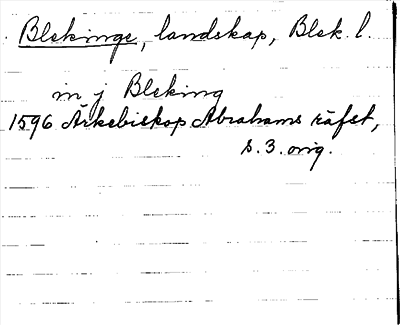 Blekinge, landskap, Blek. l.
in j Bleking
1596 Ärkebiskop Abrahams räfst,
s. 3. orig.